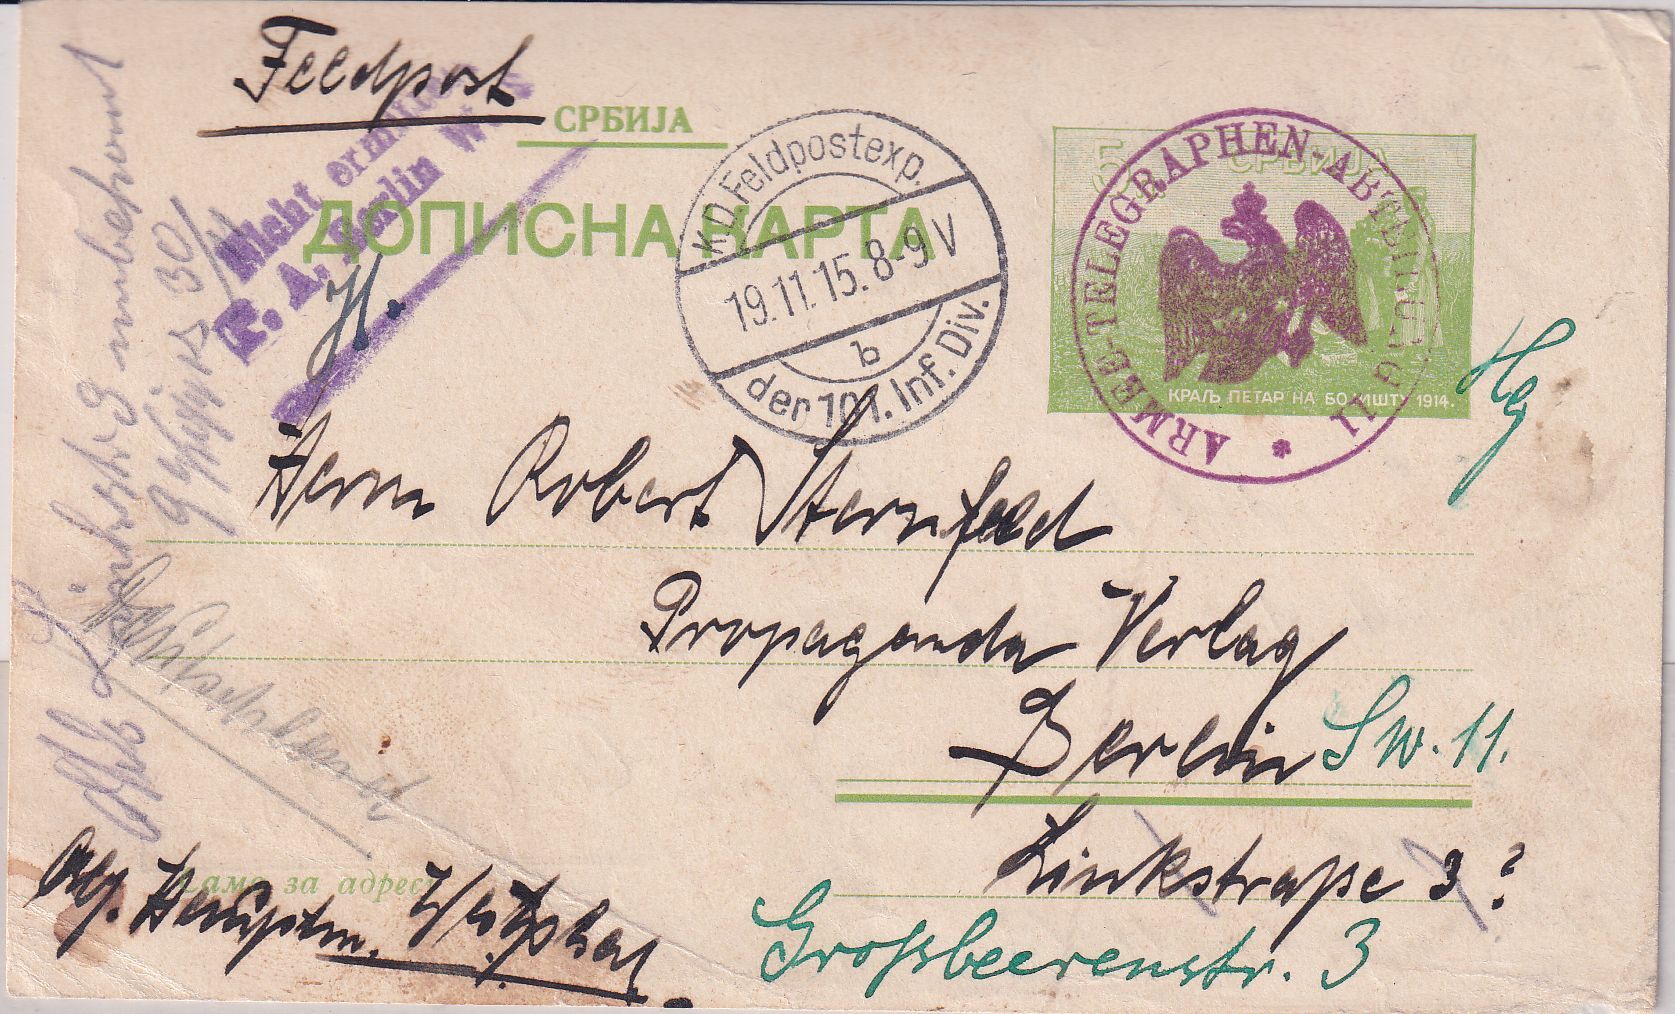 Feldpost
СРБИЈА
ДОПИСНА КАРТА
Nicht ermittelt
P. A. Berlin W
K.D. Feldpostexp.
19.11.15. 8-9 V
b
der 101. Inf. Div.
СРБИЈА
5
КРАЉ ПЕТАР НА БОЈИШТУ 1914.
ARMEE-TELEGRAPHEN-ABTEILUNG 11 *
Herrn Robert Sternfeld
Propaganda Verlag
Berlin SW. 11.
Linkstraße 3?
Großbeerenstr. 3
Linkstr. 3 unbekannt
30/11
Само за адресу
Abs. Hauptm.